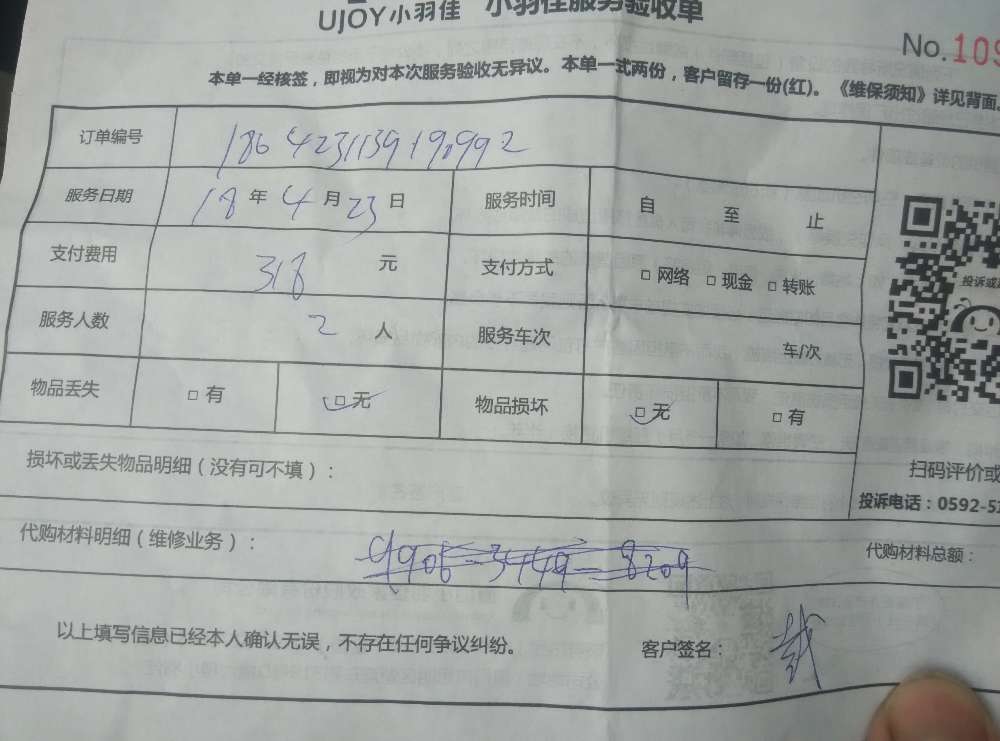 UJOY小羽佳 小羽佳服务验收单
No.109
本单一经核签，即视为对本次服务验收无异议。本单一式两份，客户留存一份(红)。《维保须知》详见背面。
订单编号
服务日期 18 年 4 月 23 日 服务时间 自 至 止
支付费用 318 元 支付方式 □ 网络 □ 现金 □ 转账
服务人数 2 人 服务车次 车/次
物品丢失 □ 有 □ 无 物品损坏 □ 无 □ 有
投诉或
损坏或丢失物品明细（没有可不填）：
扫码评价或
投诉电话：0592-5
代购材料明细（维修业务）：
代购材料总额：
以上填写信息已经本人确认无误，不存在任何争议纠纷。
客户签名：